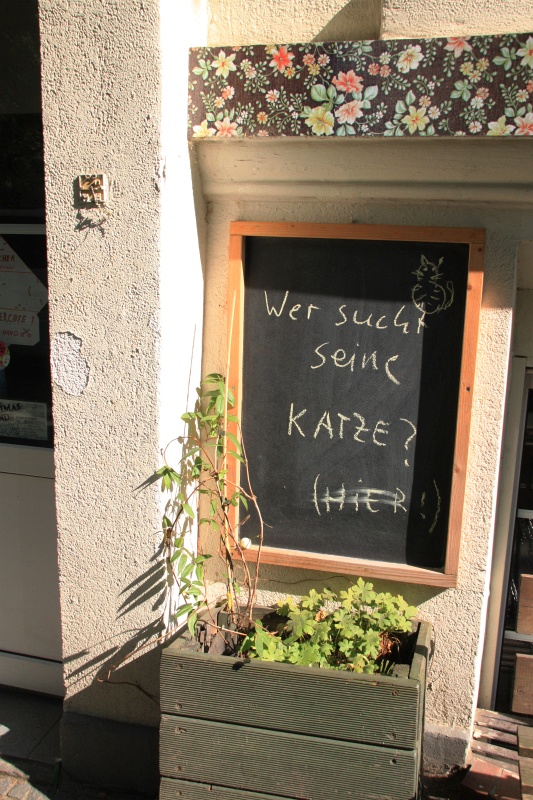 Wer sucht
seine
KATZE?
(HIER!)